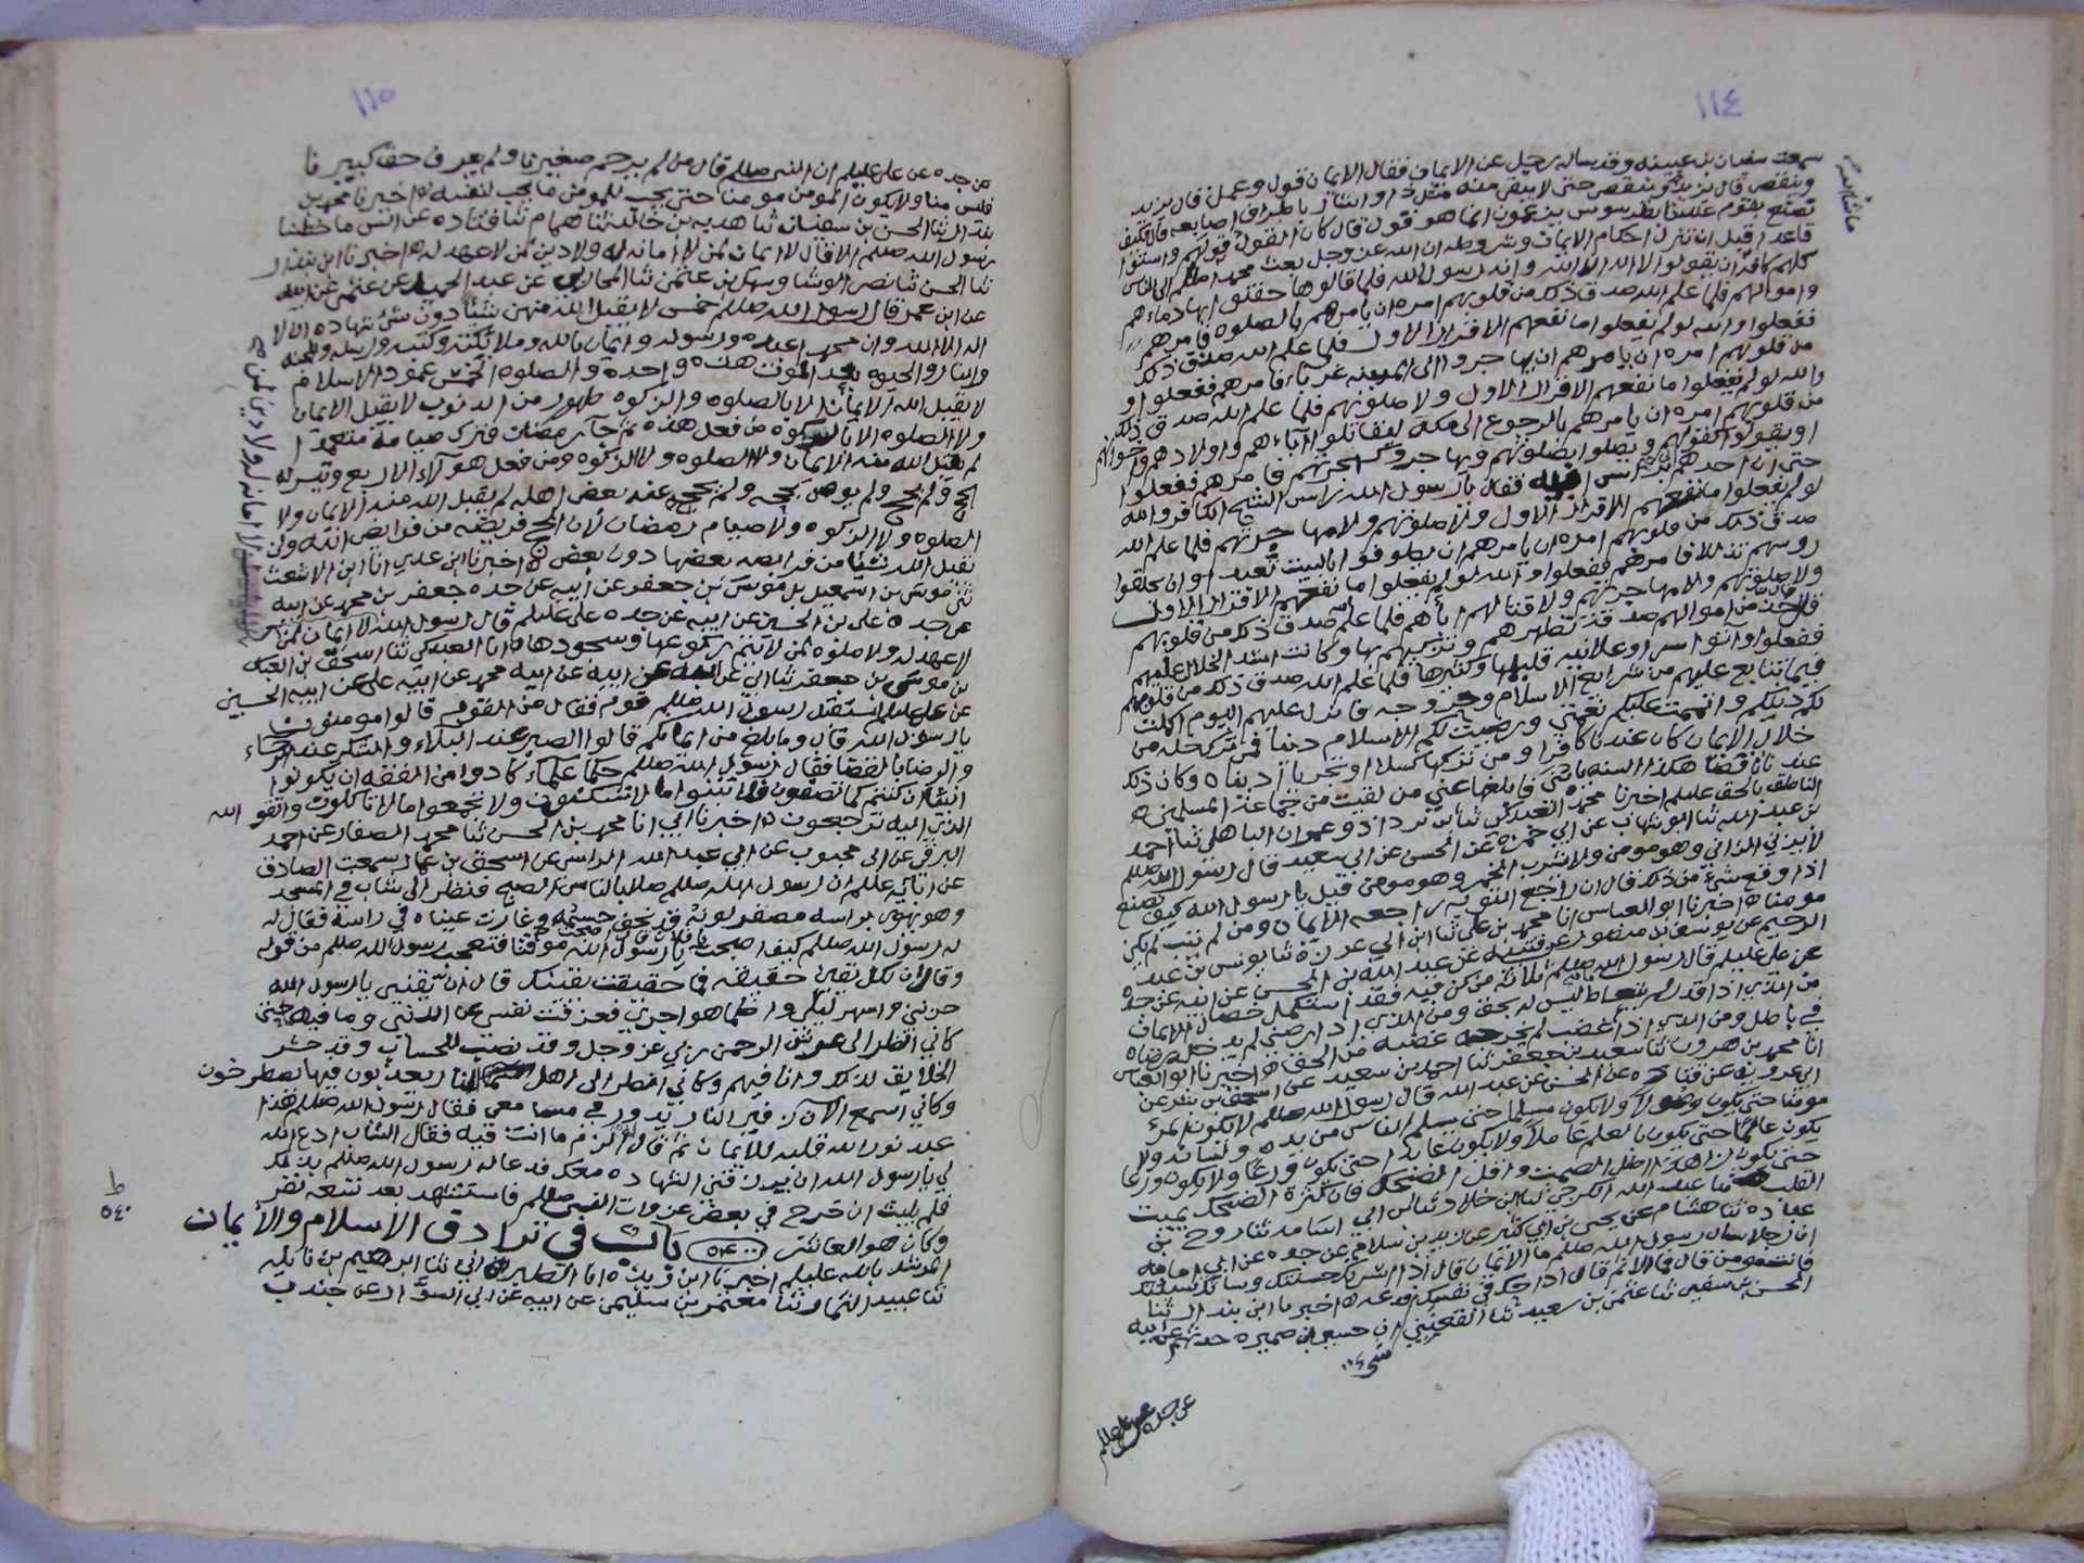 ١١٤
سمعت سفيان بن عيينة وقد ساله رجل عن الايمان فقال الايمان قول وعمل قال يزيد
وينقص قال يزيد وينقص حتى لا يبقى منه مثل ذا واشار باطراف اصابعه قال فكيف
نصنع بقوم عندنا بطرسوس يزعمون انما هو قول قال كان القول قولهم
قاعدا قبل ان تنزل احكام الايمان وشروطه ان الله عز وجل بعث محمدا صللم الى الناس
كلهم كافة ان يقولوا لا اله الا الله وانه رسول الله فلما قالوها حقنوا بها دماءهم
واموالهم فلما علم الله صدق ذلك من قلوبهم امره ان يامرهم بالصلوه فامرهم
ففعلوا والله لو لم يفعلوا ما نفعهم الاقرار الاول فلما علم الله صدق ذلك
من قلوبهم امره ان يامرهم ان يهاجروا الى المدينه فامرهم ففعلوا و
والله لو لم يفعلوا ما نفعهم الاقرار الاول ولا صلوتهم فلما علم الله صدق ذلك
من قلوبهم امره ان يامرهم بالرجوع الى مكه ليقاتلوا اباءهم واولادهم واخوانهم
او يقولوا كقولهم ويصلوا بصلوتهم ويهاجروا كهجرتهم فامرهم ففعلوا
حتى ان احدهم فقال يا رسول الله راس الشيخ الكافر والله
لو لم يفعلوا ما نفعهم الاقرار الاول ولا صلوتهم ولا مهاجرتهم فلما علم الله
صدق ذلك من قلوبهم امره ان يامرهم ان يطوفوا بالبيت تعبدا وان يحلقوا
روسهم تذللا فامرهم ففعلوا والله لو لم يفعلوا ما نفعهم الاقرار الاول
ولا صلوتهم ولا مهاجرتهم ولا قتالهم اباهم فلما علم صدق ذلك من قلوبهم
قال خذ من اموالهم صدقة تطهرهم وتزكيهم بها وكانت اشد الخلال عليهم
ففعلوا واتوا سرا وعلانيه قليلها وكثيرها فلما علم الله صدق ذلك من قلوبهم
فيما تتابع عليهم من شرايع الاسلام وحدوده انزل عليهم اليوم اكملت
لكم دينكم واتممت عليكم نعمتي ورضيت لكم الاسلام دينا فمن ترك خله من
خلال الايمان كان عندنا كافرا ومن تركها كسلا او تجربا ادبناه وكان ذلك
عندنا ناقصا هكذا السنه فابلغها عني من لقيت من جماعة المسلمين ه
الناطق بالحق عليلم اخبرنا محمد العبدكي ثنا بن يزداذ وعمران الباهلي ثنا احمد
بن عبد الله ثنا ابو شهاب عن ابي حمزه عن الحسن عن ابي سعيد قال رسول الله صللم
لا يزني الزاني وهو مومن ولا يشرب الخمر وهو مومن قيل يا رسول الله كيف يصنع
اذا وقع شئ من ذلك قال ان راجع التوبه راجعه الايمان ومن لم يتب لم يكن
مومنا ه اخبرنا ابو العباس انا محمد بن علي ثنا ابن ابي ثنا يونس بن عبد
الرحيم عن يوسف بن منصور عن عبد الله بن الحسن عن ابيه عن جده
عن علي عليلم قال رسول الله صللم ثلاثة من كن فيه فقد استكمل خصال الايمان
من الذي اذا قدر لم يتعاط ليس له بحق ومن الذي اذا رضي لم يدخله رضاه
في باطل ومن الذي اذا غضب لم يخرجه غضبه من الحق ه اخبرنا ابو العباس
انا محمد بن هرون ثنا سعيد بن جعفر ثنا احمد بن سعيد عن اسحق بن بشر عن
ابي عروبة عن قتاده عن الحسن عن عبد الله قال رسول الله صللم لا يكون المرء
مومنا حتى يكون وصولا ولا يكون مسلما حتى يسلم الناس من يده ولسانه ولا
يكون عالما حتى يكون بالعلم عاملا ولا يكون عابدا حتى يكون ورعا ولا يكون ورعا
حتى يكون زاهدا اطل الصمت واقل الضحك فان كثرة الضحك يميت
القلب ه ثنا عبد الله الكرخي ثنا ابن خلاد ثنا ابن ابي اسامه ثنا روح بن
عباده ثنا هشام عن يحيى بن ابي كثير عن زيد بن سلام عن جده عن ابي امامه
ان رجلا سال رسول الله صللم ما الايمان قال اذا سرتك حسنتك وساتك سيئتك
فانت مومن قال فما الاثم قال اذا حك في نفسك فدعه ه اخبرنا ابن بندار ثنا
الحسن بن سفين ثنا عثمن بن سعيد ثنا القعنبي ان حسين بن ضميره حدثهم عن ابيه
عن جده عن علي عليلم
١١٥
عن جده عن علي عليلم ان النبي صللم قال من لم يرحم صغيرنا ولم يعرف حق كبيرنا
فليس منا ولا يكون المومن مومنا حتى يحب للمومنين ما يحب لنفسه ه اخبرنا محمد بن
بندار ثنا الحسن بن سفيان ثنا هدبه بن خالد ثنا همام ثنا قتاده عن انس ما خطبنا
رسول الله صللم الا قال لا ايمان لمن لا امانه له ولا دين لمن لا عهد له ه اخبرنا ابن بندار
ثنا الحسن ثنا نصر الوشا وسهل بن عثمن ثنا المحاربي عن عبد الحميد عن عثمن عن ابيه
عن ابن عمر قال رسول الله صللم خمس لا يقبل الله منهن شئا دون شئ شهاده ان لا
اله الا الله وان محمدا عبده ورسوله وايمان بالله وملائكته وكتبه ورسله والجنه
والنار والحيوه بعد الموت هذه واحده والصلوه الخمس عمود الاسلام
لا يقبل الله الايمان الا بالصلوه والزكوه طهور من الذنوب لا يقبل الايمان
ولا الصلوه الا بالزكوه من فعل هذه ثم جا رمضان فترك صيامه متعمدا
لم يقبل الله منه الايمان ولا الصلوه ولا الزكوه ومن فعل هؤلاء الاربع وتيسر له
الحج ولم يحج ولم يوص بحجه ولم يحج عنه بعض اهله لم يقبل الله منه الايمان ولا
الصلوه ولا الزكوه ولا صيام رمضان لان الحج فريضه من فرائض الله ولن
يقبل الله شئيا من فرايضه بعضها دون بعض ه اخبرنا ابن عدي انا ابن الاشعث
ثني موسى بن اسمعيل بن موسى بن جعفر عن ابيه عن جده جعفر بن محمد عن ابيه
عن جده علي بن الحسين عن ابيه عن جده علي عليلم قال رسول الله لا ايمان لمن
لا عهد له ولا صلوه لمن لا يتم ركوعها وسجودها ه انا العبدكي ثنا اسحق بن العباس
بن موسى بن جعفر ثنا ابي عن ابيه عن ابيه محمد عن ابيه علي عن ابيه الحسين
عن علي عليلم استقبل رسول الله صللم قوم فقال من القوم قالوا مومنون
يا رسول الله قال وما بلغ من ايمانكم قالوا الصبر عند البلاء والشكر عند الرخاء
والرضا بالقضا فقال رسول الله صللم حلما علماء كادوا من الفقه ان يكونوا
انبياء ان كنتم كما تصفون فلا تبنوا ما لا تسكنون ولا تجمعوا ما لا تاكلون واتقو الله
الذي اليه ترجعون ه اخبرنا ابي انا محمد بن الحسن ثنا محمد الصفار عن احمد
البرقي عن ابن محبوب عن ابي عبد الله عن اسحق بن عمار سمعت الصادق
عن ابائه عللم ان رسول الله صللم صلا بالناس الصبح فنظر الى شاب في المسجد
وهو يهوي براسه مصفر لونه قد نحف جسمه وغارت عيناه في راسه فقال له
له رسول الله صللم كيف اصبحت يا فلان قال اصبحت يا رسول الله موقنا فتعجب رسول الله صللم من قوله
وقال ان لكل يقين حقيقه فما حقيقت يقينك قال ان يقيني يا رسول الله
حزنني واسهر ليلي واظما هواجري فعزفت نفسي عن الدنيا وما فيها حتى
كاني انظر الى عرش الرحمن ربي عز وجل وقد نصب للحساب وقد حشر
الخلايق لذلك وانا فيهم وكاني انظر الى اهل النار يعذبون فيها يصطرخون
وكاني اسمع الآن زفير النار يدور في مسامعي فقال رسول الله صللم هذا
عبد نور الله قلبه للايمان ثم قال له الزم ما انت فيه فقال الشاب ادع الله
لي يا رسول الله ان يرزقني الشهاده معك فدعا له رسول الله صللم بذلك
فلم يلبث ان خرج في بعض غزوات النبي صللم فاستشهد بعد تسعه نفر
وكان هو العاشر باب في ترادف الاسلام والأيمان
المرشد بالله عليلم اخبرنا ابن ريذه انا الطبراني ثنا ابرهيم بن نايله
ثنا عبيد الثمار ثنا معتمر بن سليمن عن ابيه عن ابي السوار عن جندب